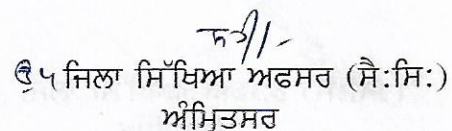 ਸਹੀ/-
ਉਪ ਜਿਲਾ ਸਿੱਖਿਆ ਅਫਸਰ (ਸੈ:ਸਿ:)
ਅੰਮ੍ਰਿਤਸਰ